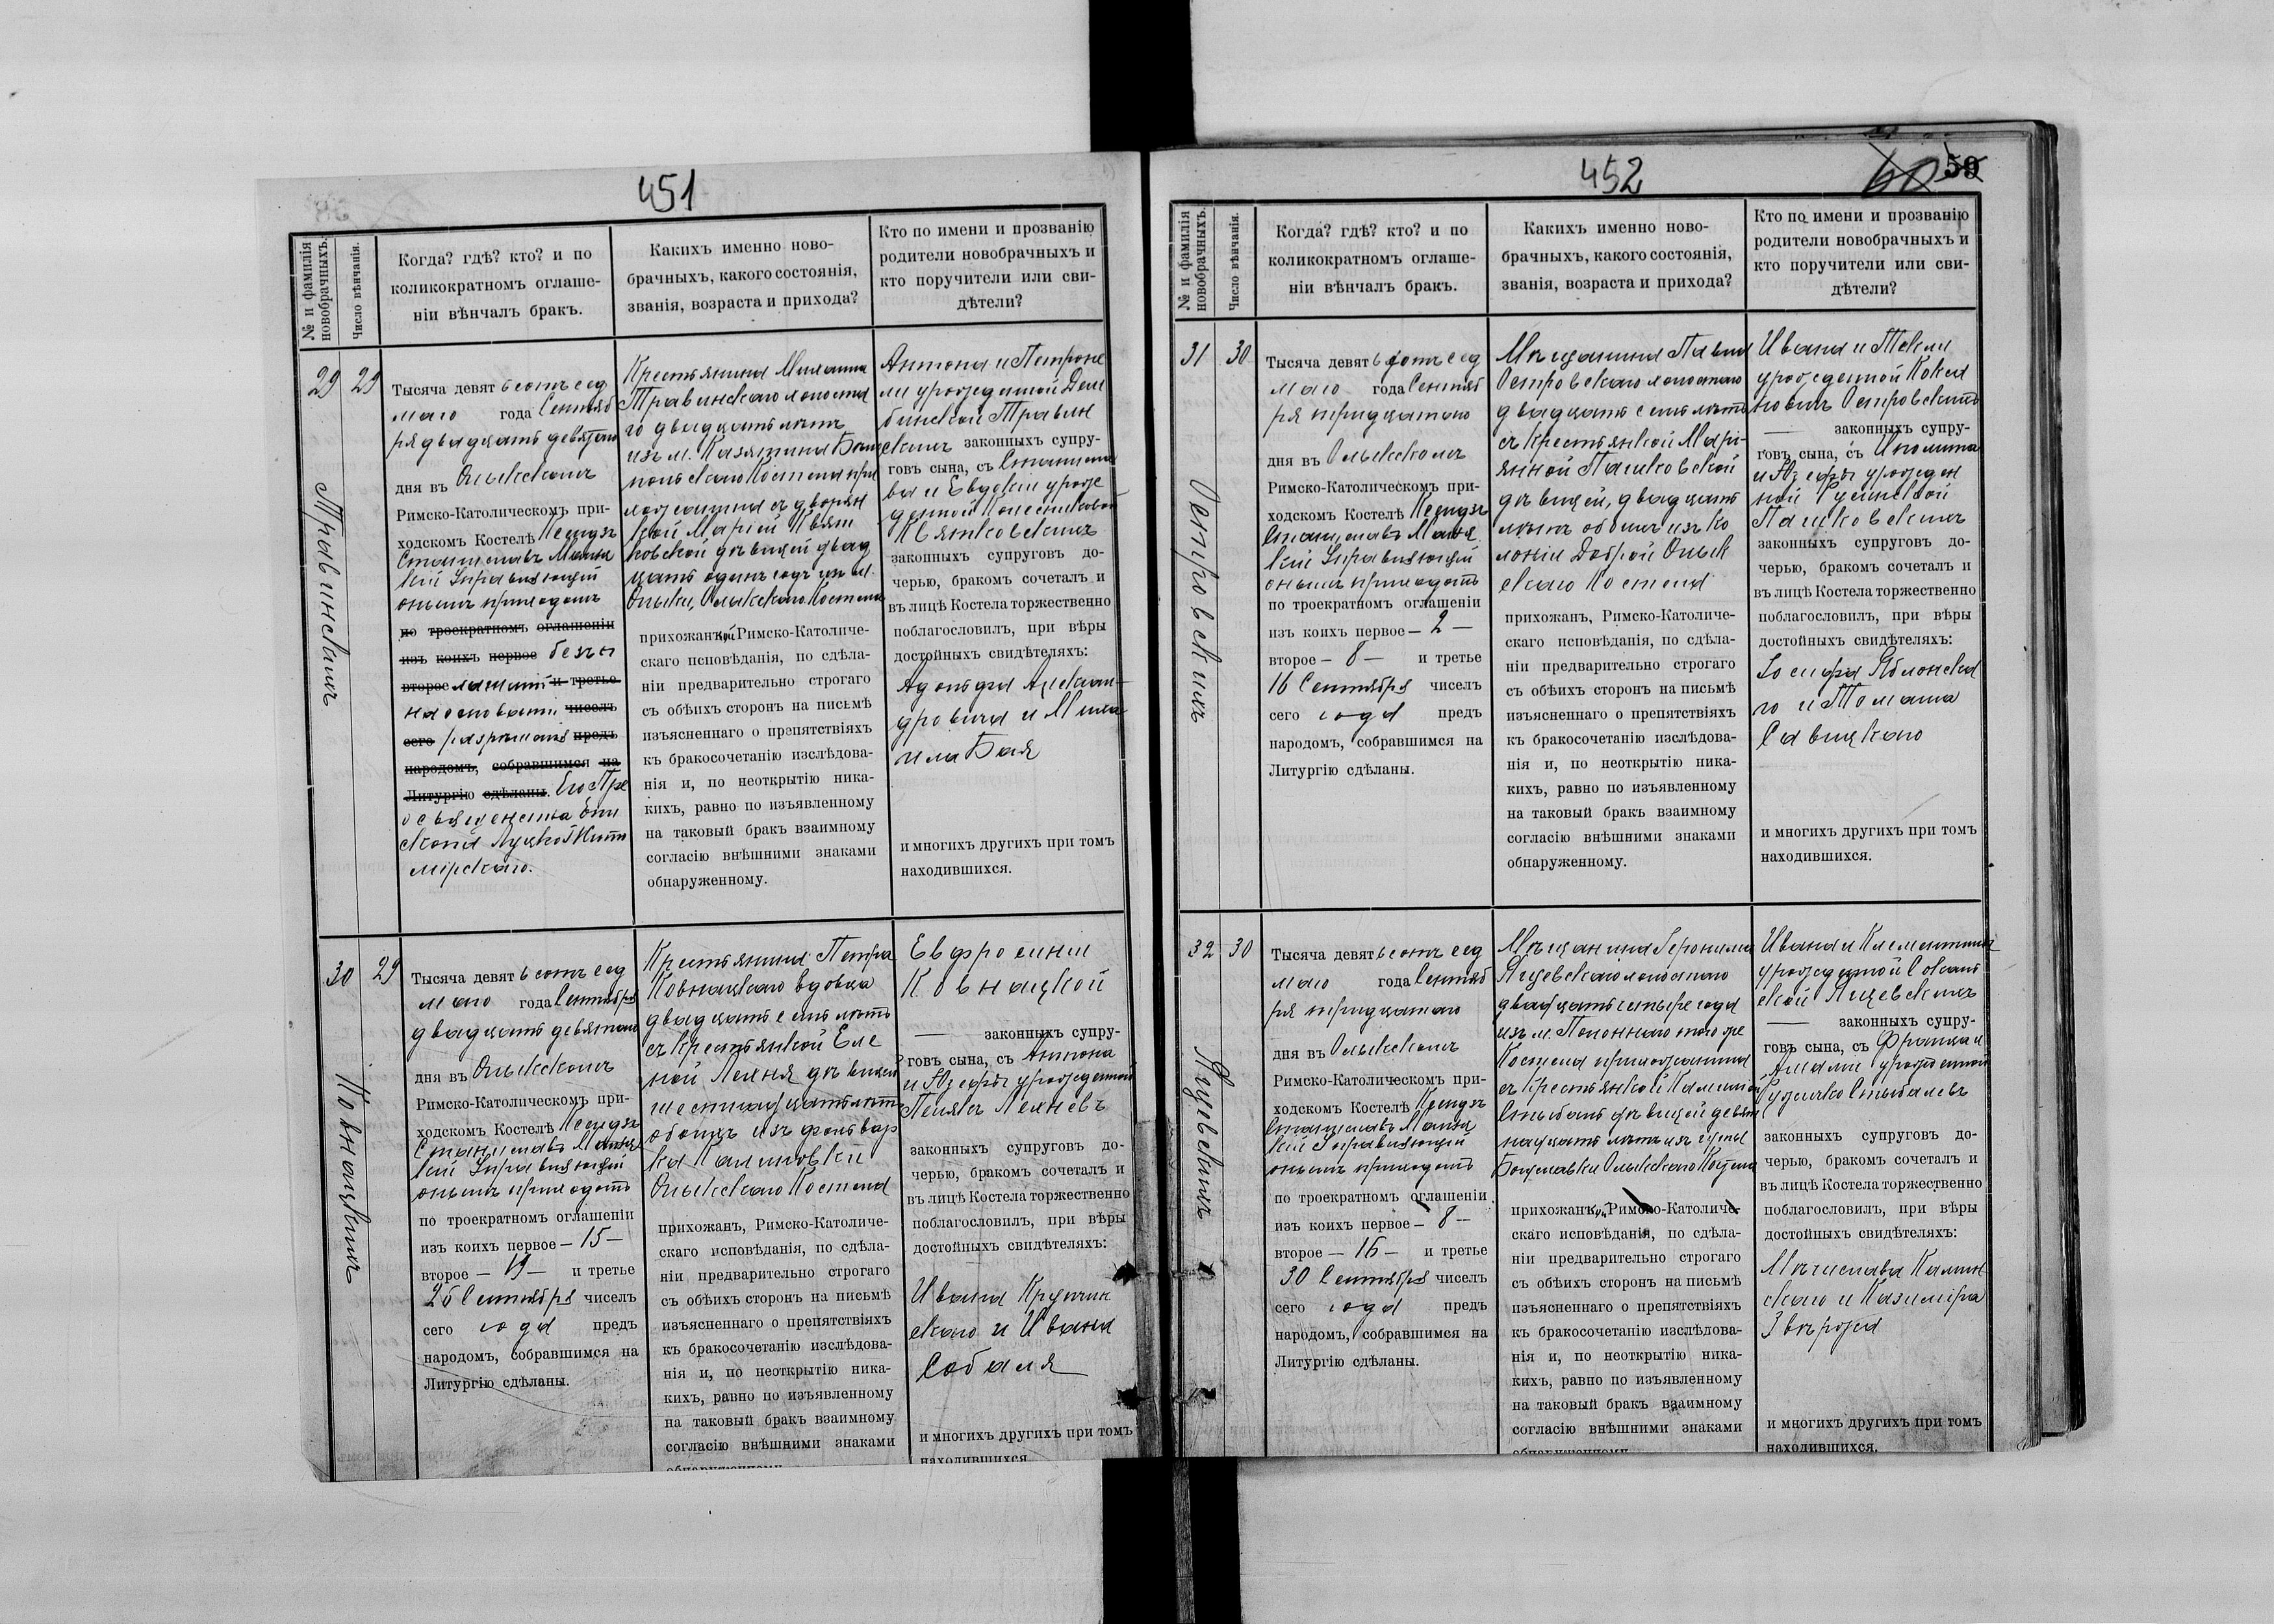 451
№ и фамилія новобрачныхъ.
Число вѣнчанія.
Когда? гдѣ? кто? и по
коликократномъ оглаше-
ніи вѣнчалъ бракъ.
Какихъ именно ново-
брачныхъ, какого состоянія,
званія, возраста и прихода?
Кто по имени и прозванію
родители новобрачныхъ и
кто поручители или сви-
дѣтели?
29
Травинскихъ
29
Тысяча девятьсотъ сед
маго года Сентяб
ря двадцать девятаго
дня въ Олыкскомъ
Римско-Католическомъ при-
ходскомъ Костелѣ Ксендзъ
Станиславъ
Управляющій
онымъ приходомъ
по троекратномъ оглашеніи
изъ коихъ первое безъ о
второе и третье
на основаніи чиселъ
сего разрешенія предъ
народомъ, собравшимся на
Литургію сдѣланы. Его Пре
освященства Епи
скопа Луцко Жито
мірскаго.
Крестьянина Михаила
Травинскаго холоста
го двадцать лѣтъ
изъ м. Казятина
Костела при
хожанина съ дворян
кой Маріей Квят
ковской дѣвицей двад
цать одинъ годъ изъ м.
Олыки, Олыкскаго Костела
прихожанкой Римско-Католиче-
скаго исповѣданія, по сдѣла-
ніи предварительно строгаго
съ обѣихъ сторонъ на письмѣ
изъясненнаго о препятствіяхъ
къ бракосочетанію изслѣдова-
нія и, по неоткрытію ника-
кихъ, равно по изъявленному
на таковый бракъ взаимному
согласію внѣшними знаками
обнаруженному.
Антона и Петроне
ли урожденной Дем
бинской Травин
скихъ законныхъ супру-
говъ сына, съ Станисла
ва и Евдокіи урож
денной
Квятковскихъ
законныхъ супруговъ до-
черью, бракомъ сочеталъ и
въ лицѣ Костела торжественно
поблагословилъ, при вѣры
достойныхъ свидѣтеляхъ:
Адольфа Алексан-
дровича и Миха
ила Бая
и многихъ другихъ при томъ
находившихся.
30
Ковнацкихъ
29
Тысяча девятьсотъ сед
маго года Сентября
двадцать девятаго
дня въ Олыкскомъ
Римско-Католическомъ при-
ходскомъ Костелѣ Ксендзъ
Станиславъ
Управляющій
онымъ приходомъ
по троекратномъ оглашеніи
изъ коихъ первое — 15 —
второе — 19 — и третье
26 Сентября чиселъ
сего года предъ
народомъ, собравшимся на
Литургію сдѣланы.
Крестьянина Петра
Ковнацкаго вдовца
двадцать семь лѣтъ
съ крестьянкой Еле
ной Лехня дѣвицей
шестнадцать лѣтъ
обоихъ изъ фольвар
ка Калиновки
Олыкскаго Костела
прихожан, Римско-Католиче-
скаго исповѣданія, по сдѣла-
ніи предварительно строгаго
съ обѣихъ сторонъ на письмѣ
изъясненнаго о препятствіяхъ
къ бракосочетанію изслѣдова-
нія и, по неоткрытію ника-
кихъ, равно по изъявленному
на таковый бракъ взаимному
согласію внѣшними знаками
Евфросиніи
Ковнацкой
— законныхъ супру-
говъ сына, съ Антона
и Юзефы урожденной
Лехневъ
законныхъ супруговъ до-
черью, бракомъ сочеталъ и
въ лицѣ Костела торжественно
поблагословилъ, при вѣры
достойныхъ свидѣтеляхъ:
Ивана Крупин
скаго и Ивана
Собаля
и многихъ другихъ при томъ
находившихся
452
60 59
№ и фамилія новобрачныхъ.
Число вѣнчанія.
Когда? гдѣ? кто? и по
коликократномъ оглаше-
ніи вѣнчалъ бракъ.
Какихъ именно ново-
брачныхъ, какого состоянія,
званія, возраста и прихода?
Кто по имени и прозванію
родители новобрачныхъ и
кто поручители или сви-
дѣтели?
31
Островскихъ
30
Тысяча девятьсотъ сед
маго года Сентяб
ря тридцатаго
дня въ Олыкскомъ
Римско-Католическомъ при-
ходскомъ Костелѣ Ксендзъ
Станиславъ
Управляющій
онымъ приходомъ
по троекратномъ оглашеніи
изъ коихъ первое — 2 —
второе — 8 — и третье
16 Сентября чиселъ
сего года предъ
народомъ, собравшимся на
Литургію сдѣланы.
Мѣщанина Павла
Островскаго холостаго
двадцать семь лѣтъ
съ крестьянкой Марі-
янной Пашковской
дѣвицей, двадцать
лѣтъ обоихъ изъ ко
лоніи Доброй Олык
скаго Костела
прихожан, Римско-Католиче-
скаго исповѣданія, по сдѣла-
ніи предварительно строгаго
съ обѣихъ сторонъ на письмѣ
изъясненнаго о препятствіяхъ
къ бракосочетанію изслѣдова-
нія и, по неоткрытію ника-
кихъ, равно по изъявленному
на таковый бракъ взаимному
согласію внѣшними знаками
обнаруженному.
Ивана и Текли
урожденной
Островскихъ
— законныхъ супру-
говъ сына, съ Иполита
и Юзефы урожден
ной
Пашковскихъ
законныхъ супруговъ до-
черью, бракомъ сочеталъ и
въ лицѣ Костела торжественно
поблагословилъ, при вѣры
достойныхъ свидѣтеляхъ:
Іосифа Яблонска
го и Томаша
Савицкаго
и многихъ другихъ при томъ
находившихся.
32
Яцевскихъ
30
Тысяча девятьсотъ сед
маго года Сентяб
ря тридцатаго
дня въ Олыкскомъ
Римско-Католическомъ при-
ходскомъ Костелѣ Ксендзъ
Станиславъ
Управляющій
онымъ приходомъ
по троекратномъ оглашеніи
изъ коихъ первое — 8 —
второе — 16 — и третье
30 Сентября чиселъ
сего года предъ
народомъ, собравшимся на
Литургію сдѣланы.
Мѣщанина Геронима
Яцевскаго холостаго
двадцать четыре года
изъ м. Полоннаго того же
Костела прихожанина
съ крестьянкой
дѣвицей девят
надцать лѣтъ изъ
Олыкскаго Костела
прихожанкой Римско-Католиче-
скаго исповѣданія, по сдѣла-
ніи предварительно строгаго
съ обѣихъ сторонъ на письмѣ
изъясненнаго о препятствіяхъ
къ бракосочетанію изслѣдова-
нія и, по неоткрытію ника-
кихъ, равно по изъявленному
на таковый бракъ взаимному
согласію внѣшними знаками
Ивана и Клементины
урожденной
Яцевскихъ
— законныхъ супру-
говъ сына, съ Франца и
Амаліи урожденной
законныхъ супруговъ до-
черью, бракомъ сочеталъ и
въ лицѣ Костела торжественно
поблагословилъ, при вѣры
достойныхъ свидѣтеляхъ:
Мѣчислава Камин
скаго и Казиміра
Звѣрожа
и многихъ другихъ при томъ
находившихся.